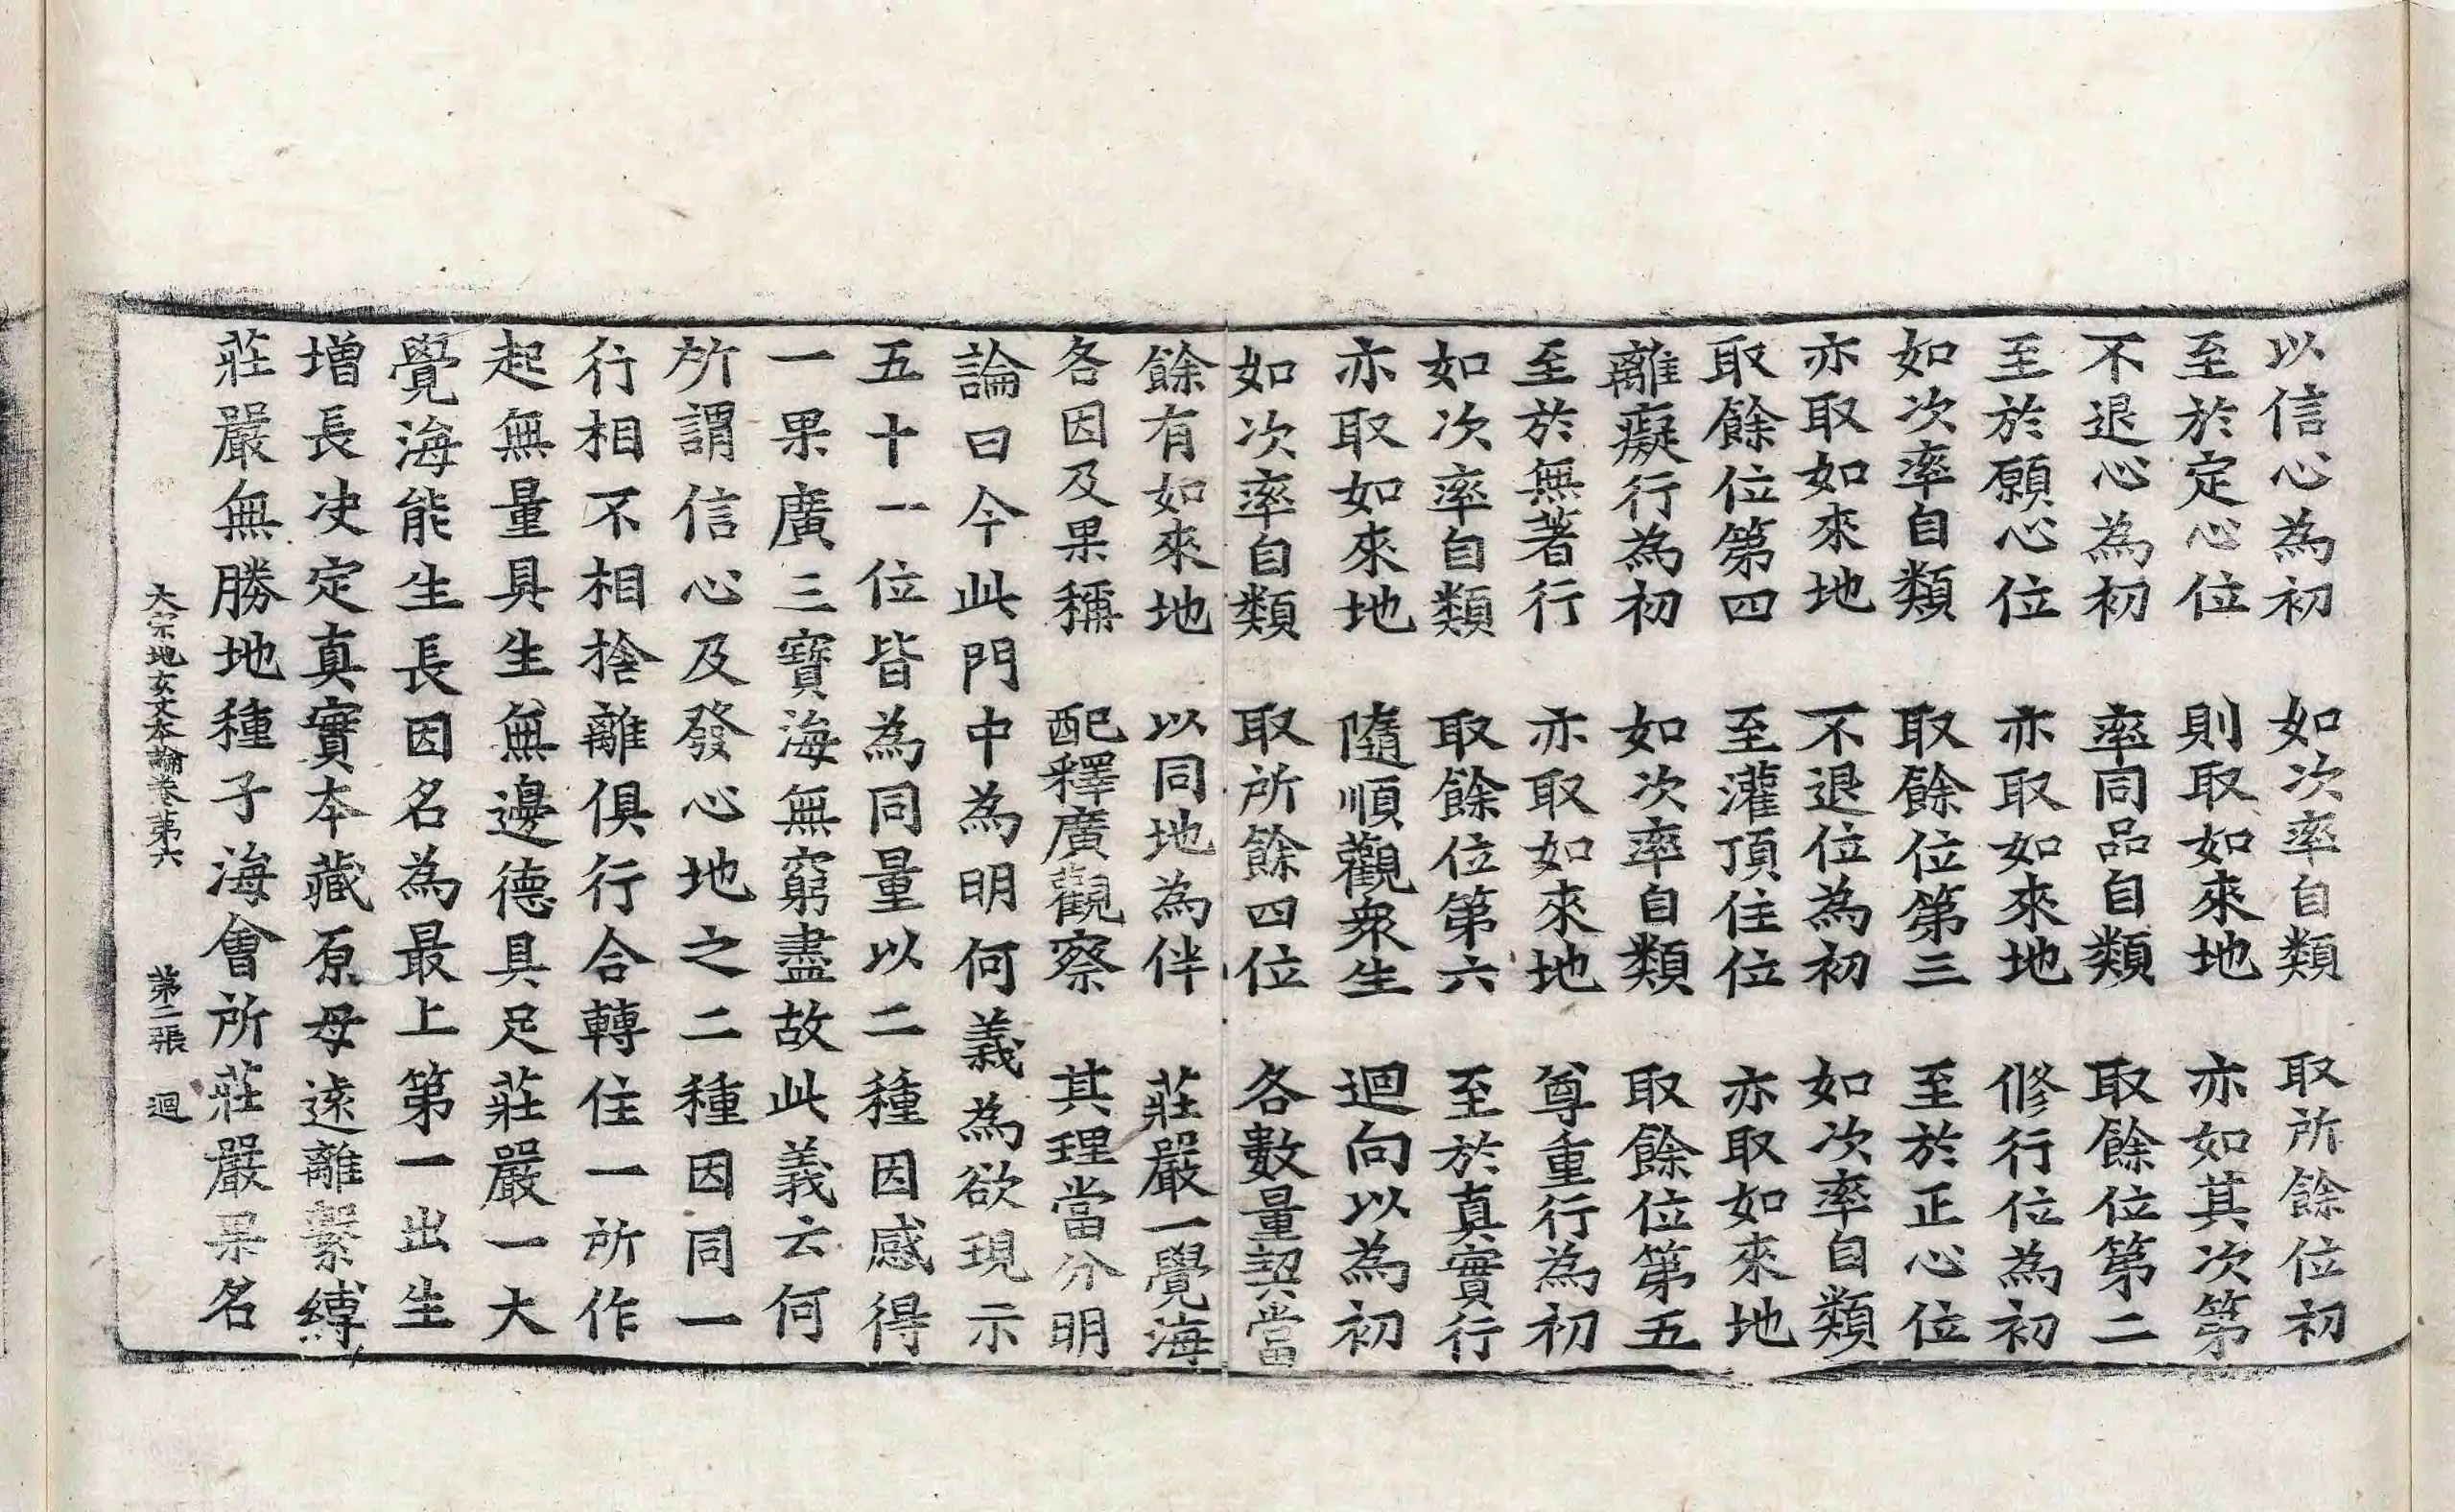 以信心為初　如次率自類　取所餘位初
至於定心位　則取如來地　亦如其次第
不退心為初　率同品自類　取餘位第二
至於願心位　亦取如來地　修行位為初
如次率自類　取餘位第三　至於正心位
亦取如來地　不退位為初　如次率自類
取餘位第四　至灌頂住位　亦取如來地
離癡行為初　如次率自類　取餘位第五
至於無著行　亦取如來地　尊重行為初
如次率自類　取餘位第六　至於真實行
亦取如來地　隨順觀衆生　迴向以為初
如次率自類　取所餘四位　各數量契當
餘有如來地　以同地為伴　莊嚴一覺海
各因及果稱　配釋廣觀察　其理當分明
論曰今此門中為明何義為欲現示
五十一位皆為同量以二種因感得
一果廣三寶海無窮盡故此義云何
所謂信心及發心地之二種因同一
行相不相捨離俱行合轉住一所作
起無量具生無邊德具足莊嚴一大
覺海能生長因名為最上第一出生
增長決定真實本藏原母遠離繫縛
莊嚴無勝地種子海會所莊嚴果名
大宗地玄文本論卷第六　第二張　迴